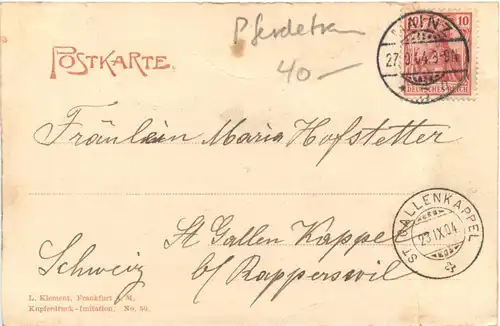 Pferdetra
40.—
POSTKARTE.
10 10
DEUTSCHES REICH
MAINZ
27.9.04.8-9N.
Fräulein Maria Hofstetter
St Gallen Kappel
b/ Rapperswil
Schweiz
ST. GALLENKAPPEL
23.IX.04
L. Klement, Frankfurt A. M.
Kupferdruck-Imitation, No. 50.